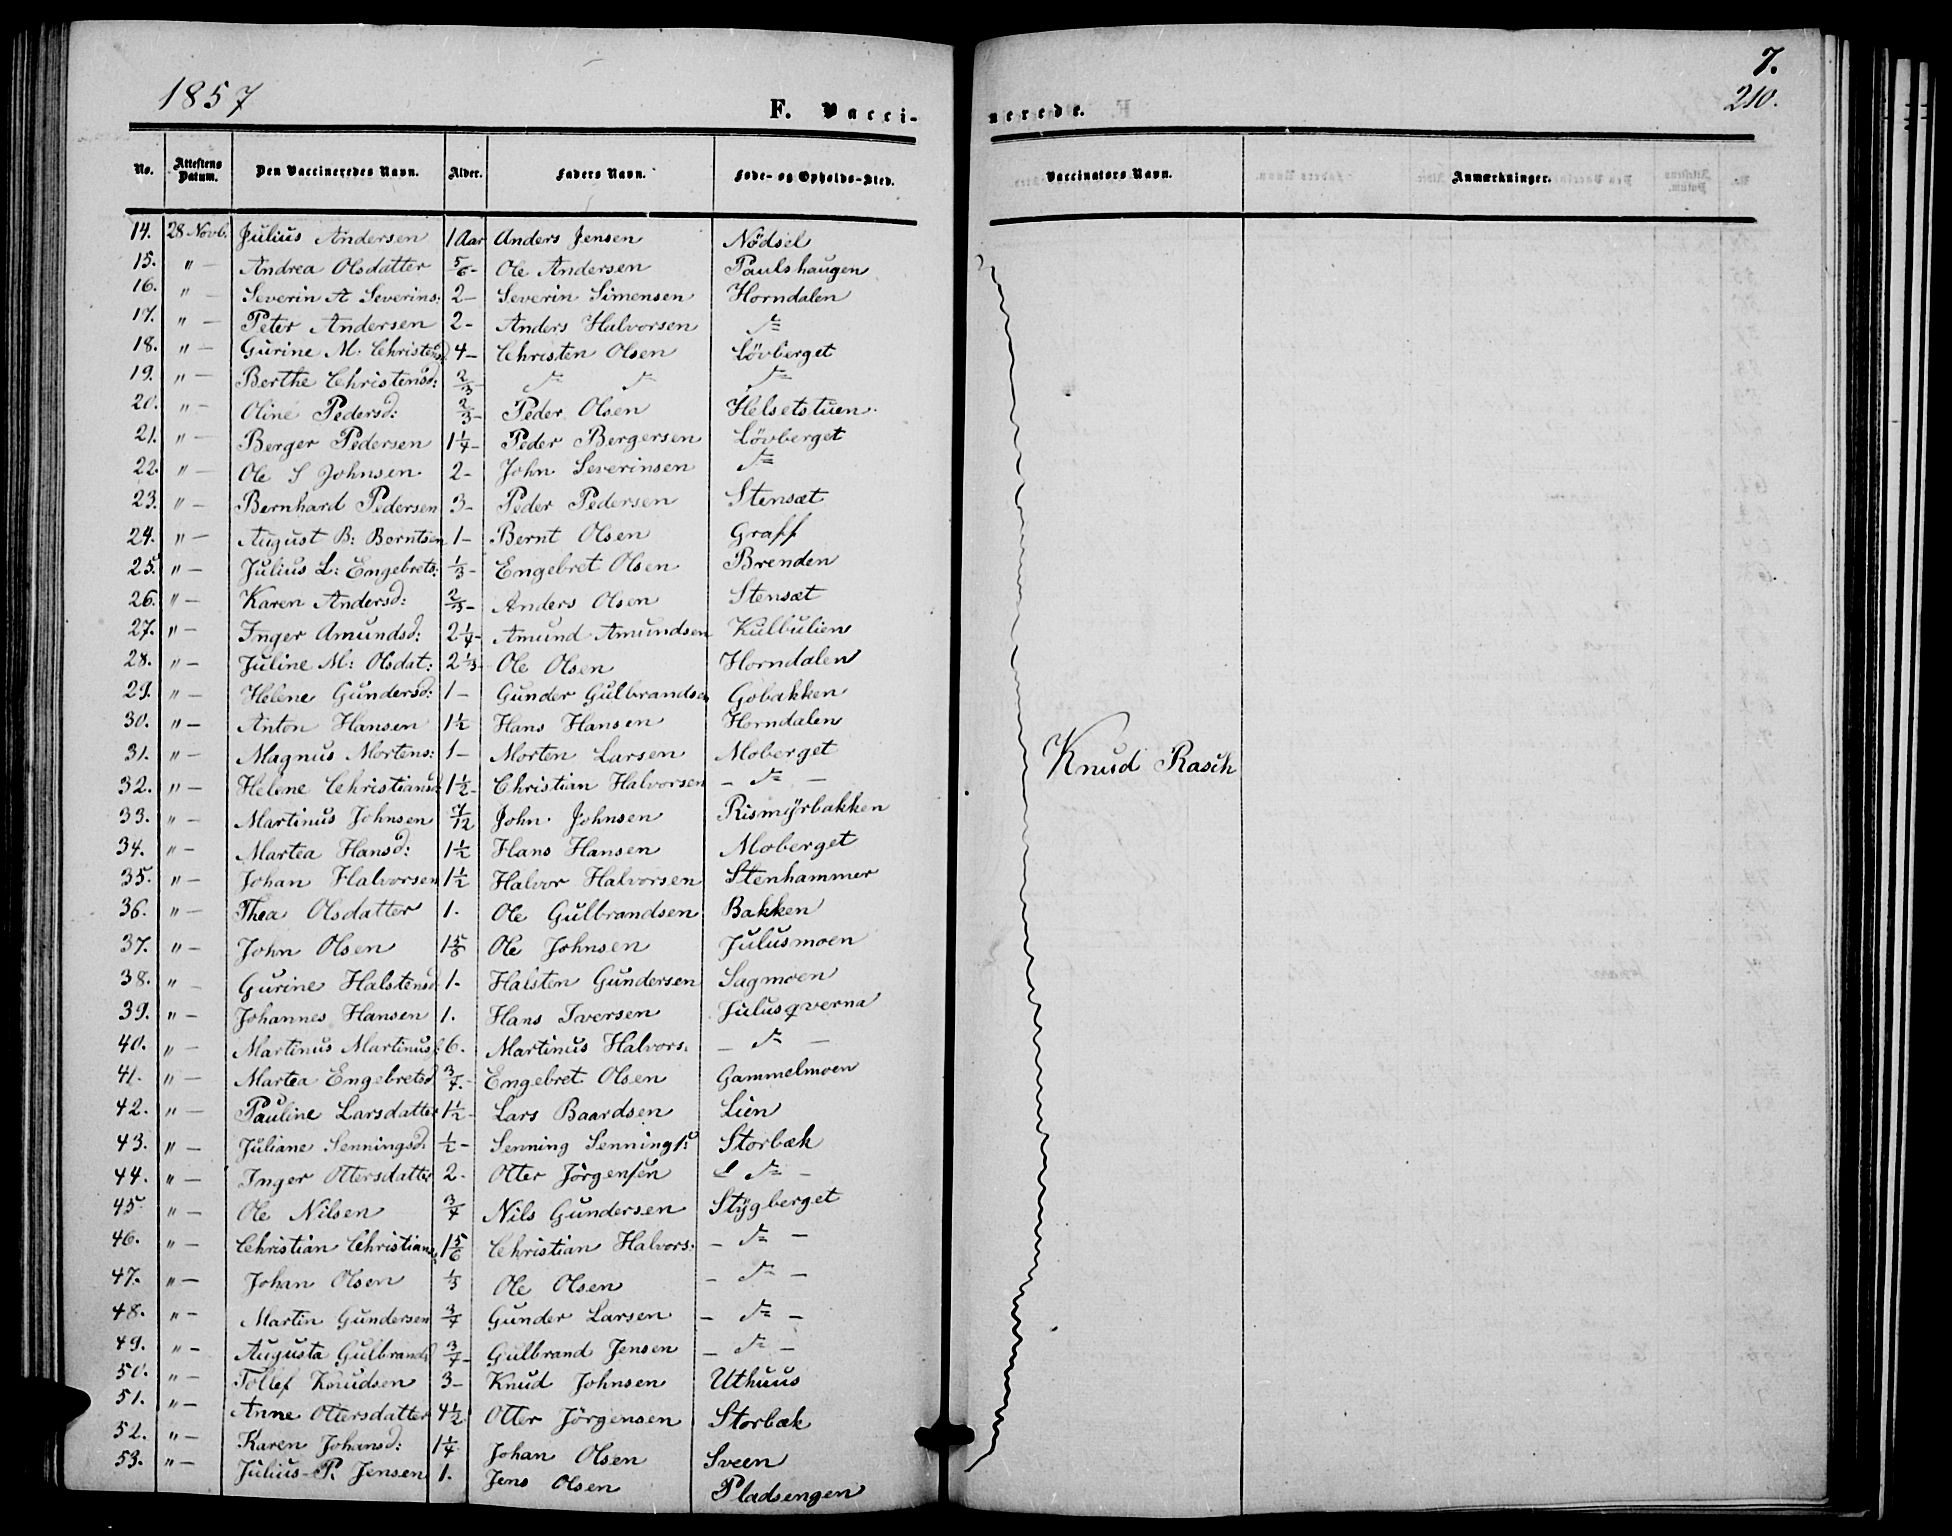 1857
7.
210.
F. Vacci-
nerede.
No. Attestens Datum. Den Vaccineredes Navn. Alder. Faders Navn. Føde- og Opholds-Sted. Vaccinators Navn. Anmærkninger.
14. 28 Novb. Julius Andersen 1 Aar Anders Jensen Nödsel
15. " — Andrea Olsdatter 5/6 - Ole Andersen Paulshaugen
16. " — Severin A Severins: 2 - Severin Simensen Horndalen
17. " — Peter Andersen 2 - Anders Halvorsen
18. " — Gurine M: Christensd 4 - Christen Olsen Lövberget
19. " — Berthe Christensd: 2/3 -
20. " — Oline Pedersd: 2/3 - Peder Olsen Helsetstuen
21. " — Berger Pedersen 1 1/4 - Peder Bergersen Lövberget
22. " — Ole S Johnsen 2 - John Severinsen
23. " — Bernhard Pedersen 3 - Peder Pedersen Stensæt
24. " — August B: Berntsen 1 - Bernt Olsen Graff
25. " — Julius L: Engebrets: 1/3 - Engebret Olsen Brenden
26. " — Karen Andersd: 2/3 - Anders Olsen Stensæt
27. " — Inger Amundsd: 2 1/4 - Amund Amundsen Kulbulien
28. " — Juline M: Olsdat: 2 1/3 - Ole Olsen Horndalen
29. " — Helene Gundersd: 1 - Gunder Gulbrandsen Gobakken
30. " — Anton Hansen 1 1/2 Hans Hansen Horndalen
31. " — Magnus Mortens: 1 - Morten Larsen Moberget
32. " — Helene Christiansd: 1 1/2 - Christian Halvorsen
Knud Rasch
33. " — Martinus Johnsen 7/12 John Johnsen Rismyrbakken
34. " — Martea Hansd: 1 1/2 Hans Hansen Moberget
35. " — Johan Halvorsen 1 1/2 Halvor Halvorsen Stenhammer
36. " — Thea Olsdatter 1. Ole Gulbrandsen Bakken
37. " — John Olsen Ole Johnsen Julusmoen
38. " — Gurine Halstensd 1. Halsten Gundersen Sagmoen
39. " — Johannes Hansen 1. Hans Iversen Julusqverna
40. " — Martinus Martinus: 6. Martinus Halvors.
41. " — Martea Engebretsd 3/4. - Engebret Olsen Gammelmoen
42. " — Pauline Larsdatter 1 1/2 - Lars Baardsen Lien
43. " — Juliane Senningsd. 1/2 - Senning Sennings: Storbæk
44. " — Inger Ottersdatter 2. Otter Jörgensen
45 " — Ole Nilsen 3/4 Nils Gundersen Stygberget
46. " — Christian Christians 1 5/6 Christian Halvors:
47. " — Johan Olsen 1/3 Ole Olsen
48. " — Martin Gundersen 3/4 Gunder Larsen
49. " — Augusta Gulbrandsd 3/4 - Gulbrand Jensen
50. " — Tollef Knudsen 3 - Knud Johnsen Uthuus
51. " — Anne Ottersdatter 4 1/2 Otter Jörgensen Storbæk
52. " — Karen Johansd: 1 1/4 Johan Olsen Sveen
53. " — Julius P. Jensen 1. Jens Olsen Pladsengen